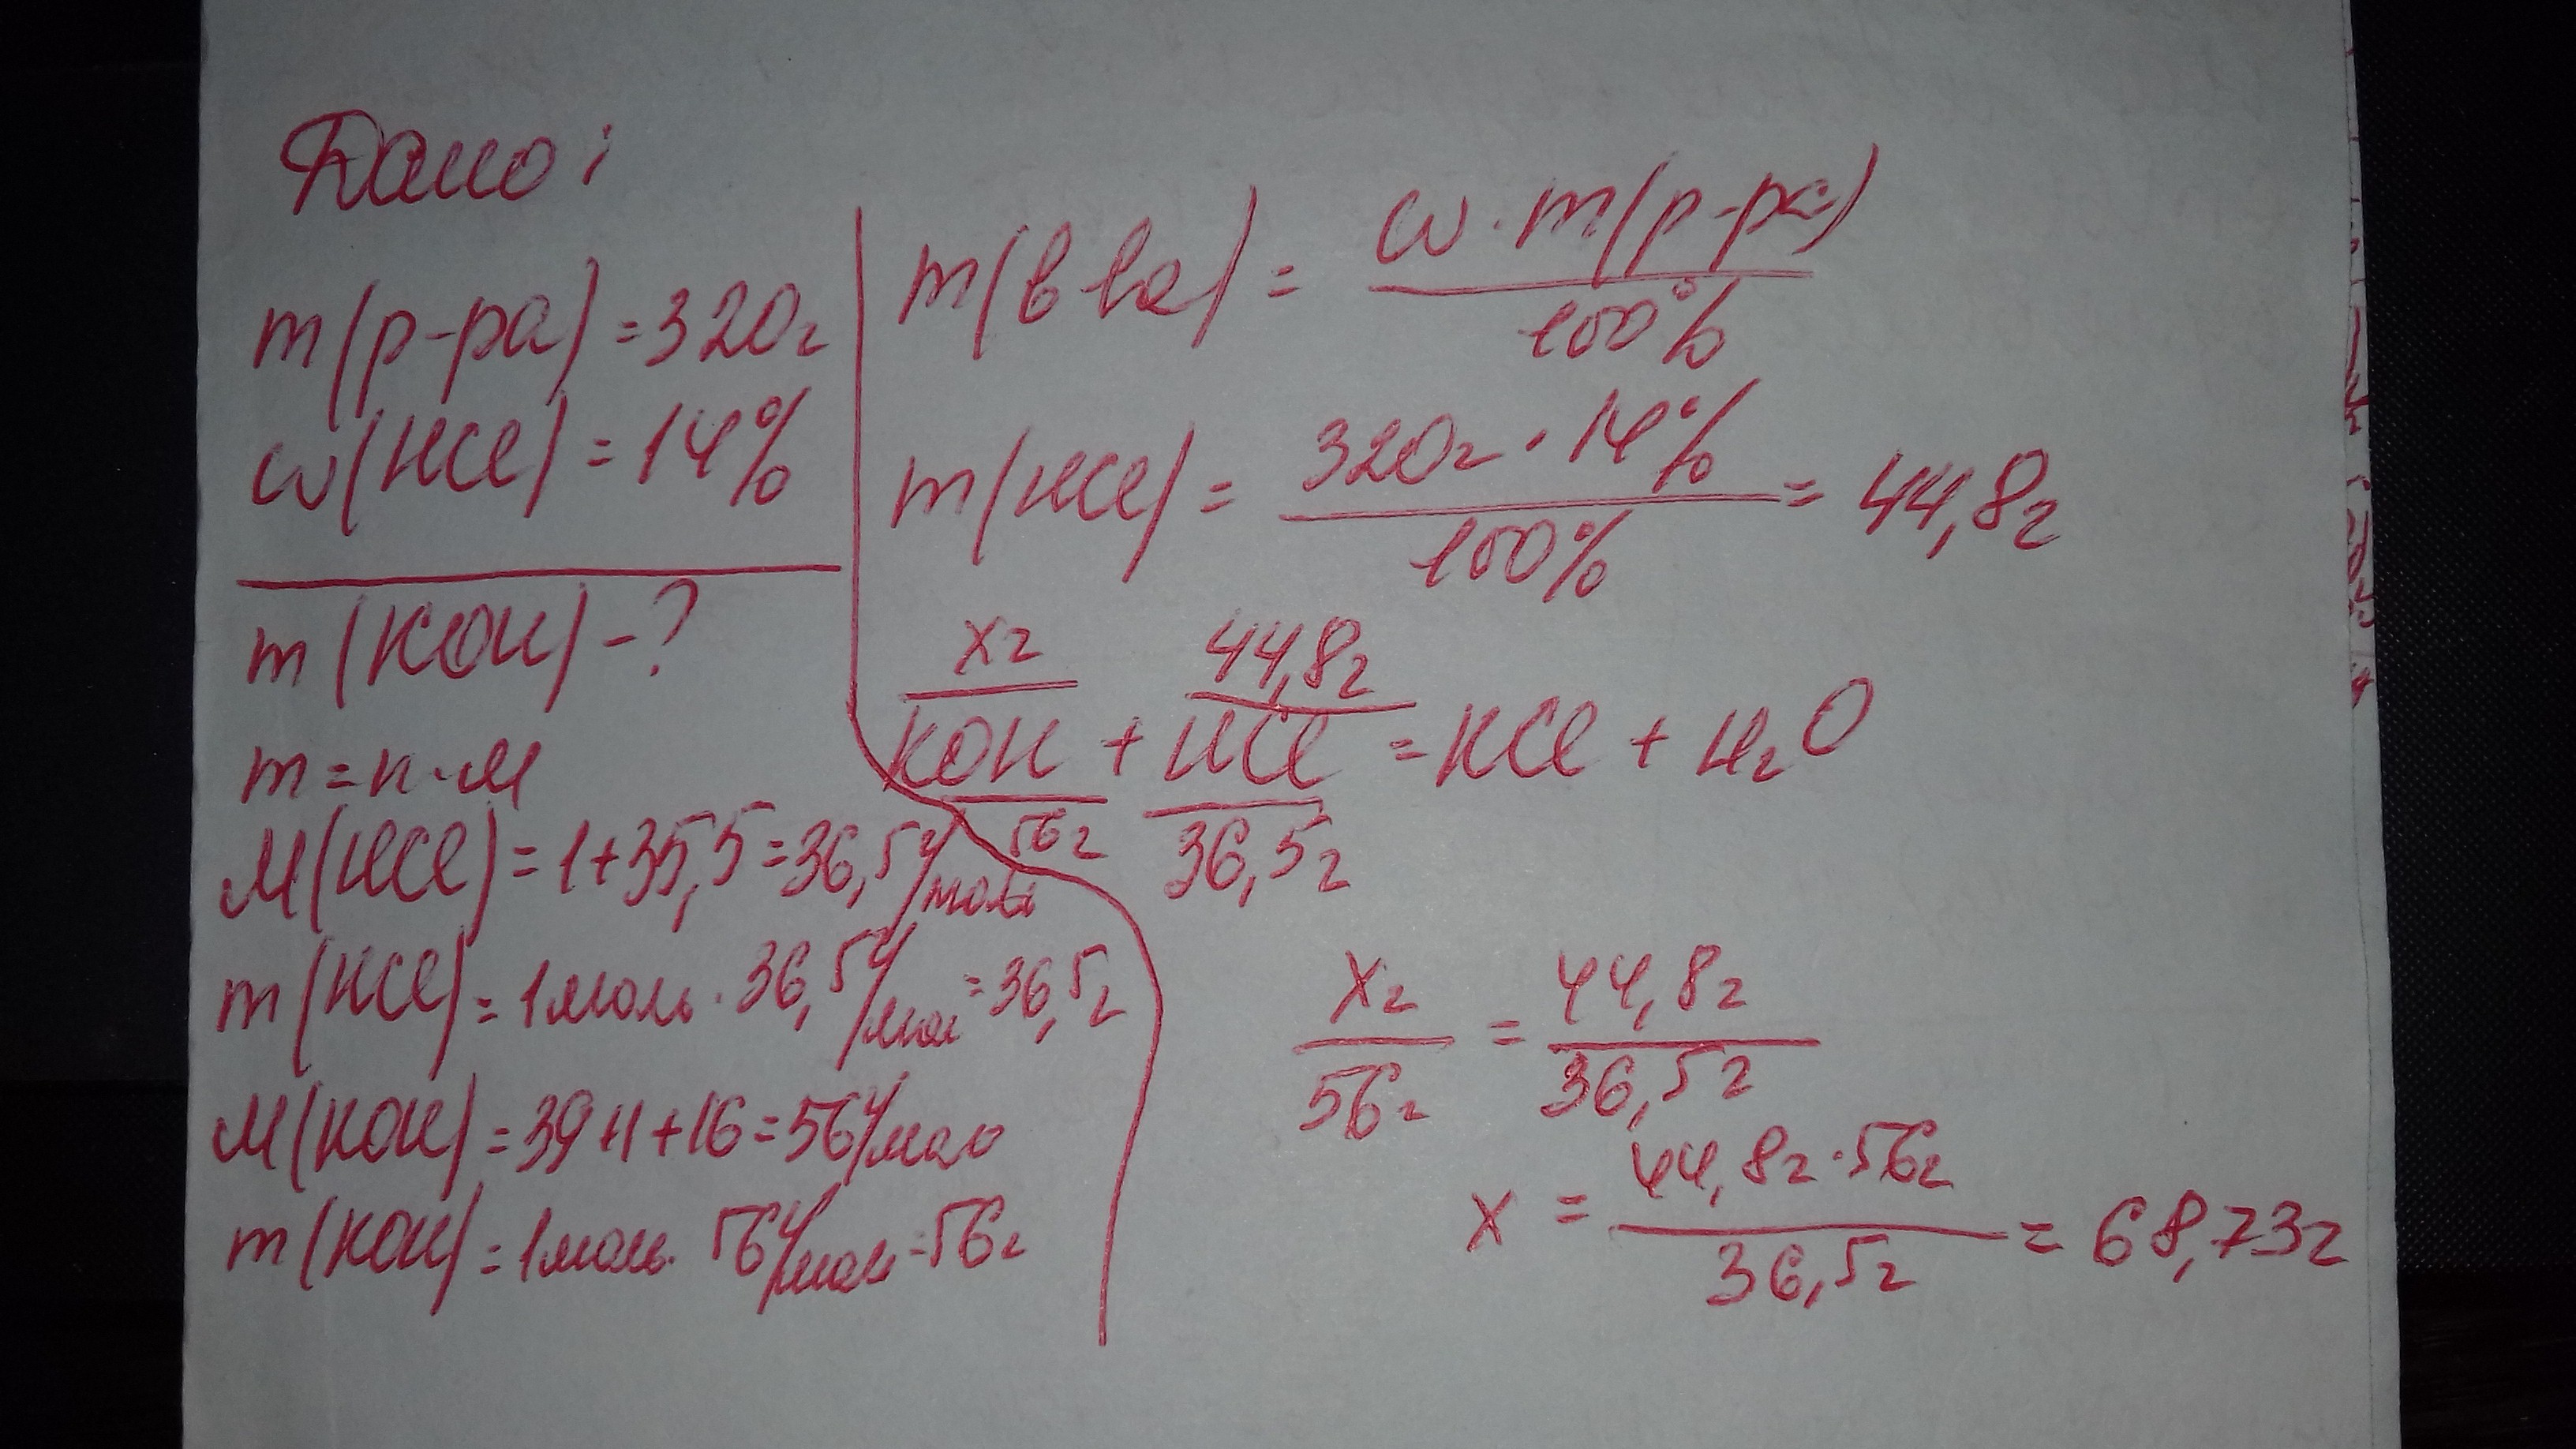 Дано:
m(р-ра) = 320г
ω(HCl) = 14%
m(KOH) - ?
m = n · M
M(HCl) = 1+35,5 = 36,5 г/моль
m(HCl) = 1моль · 36,5 г/мол = 36,5г
M(KOH) = 39+1+16 = 56 г/моль
m(KOH) = 1моль · 56 г/моль = 56г
m(в ва) = ω · m(р-ра)
100%
m(HCl) = 320г · 14% = 44,8г
100%
xг 44,8г
KOH + HCl = KCl + H₂O
56г 36,5г
xг = 44,8г
56г 36,5г
x = 44,8г · 56г = 68,73г
36,5г